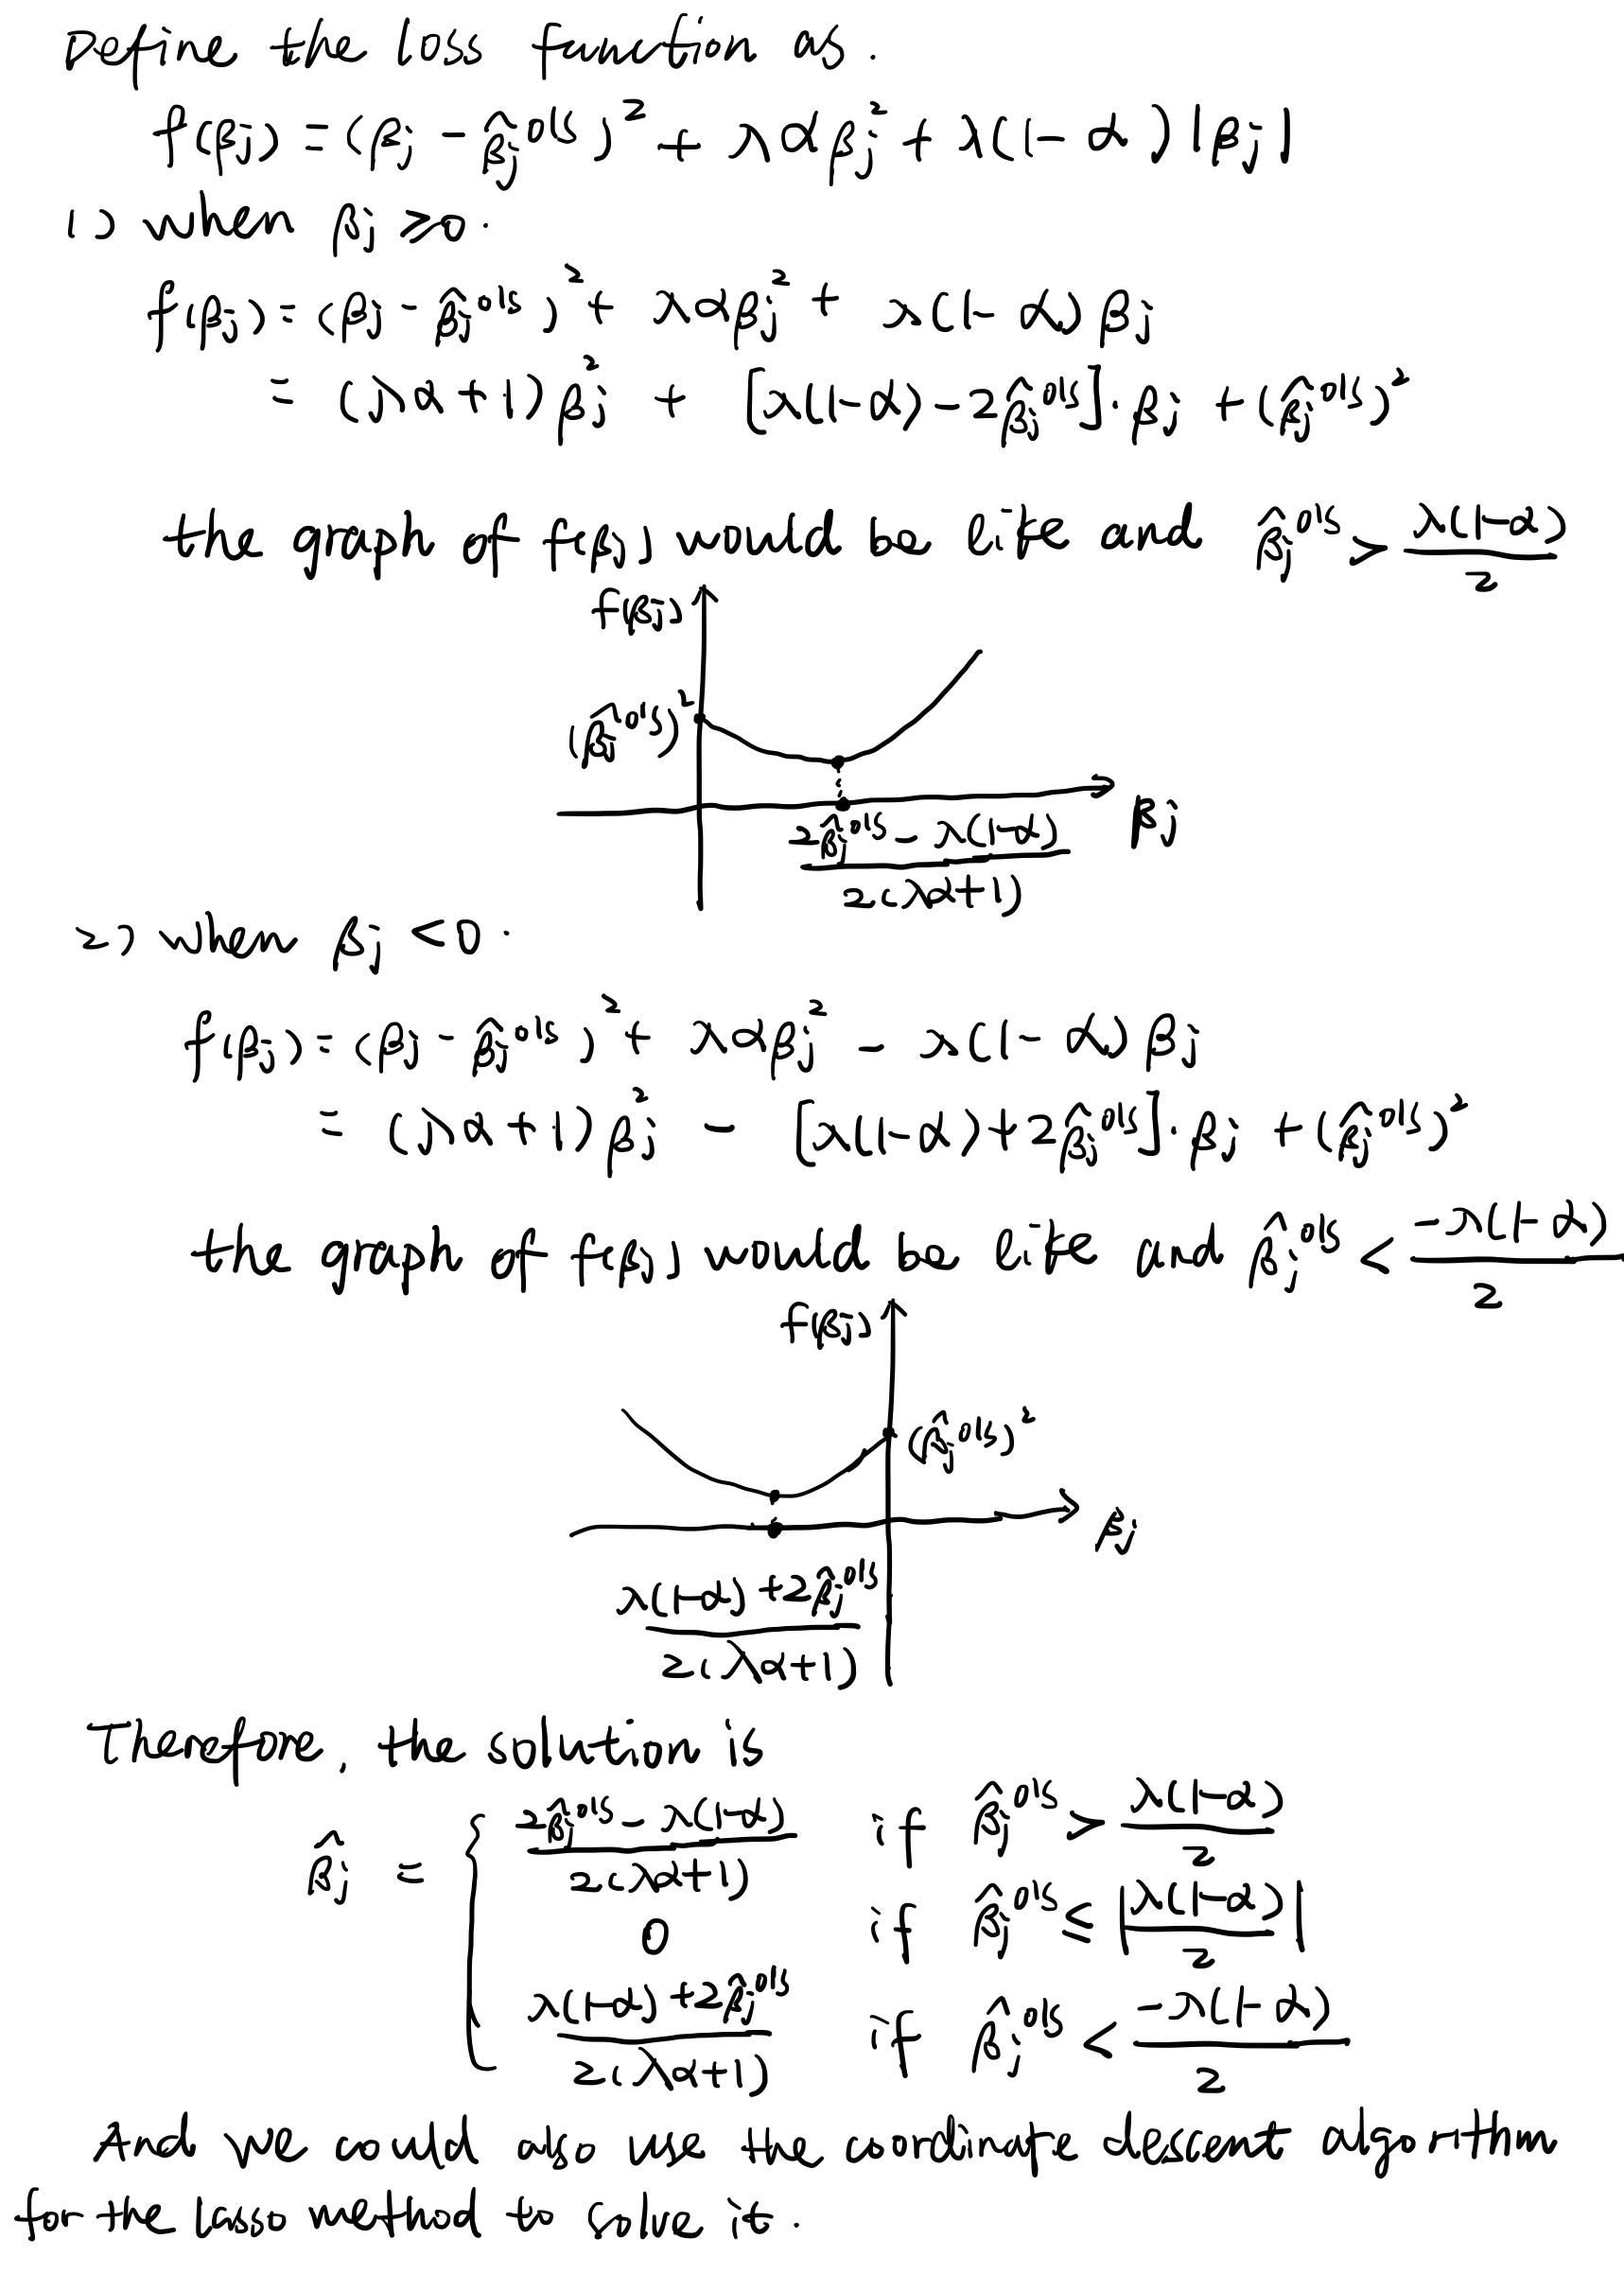 Define the loss function as.
f(βj) = (βj - β̂j^ols)² + λαβj² + λ(1-α)|βj|
1) when βj ≥ 0.
f(βj) = (βj - β̂j^ols)² + λαβj² + λ(1-α)βj
= (λα+1)βj² + [λ(1-α) - 2β̂j^ols]·βj + (β̂j^ols)²
the graph of f(βj) would be like and β̂j^ols > λ(1-α)/2
f(βj)
(β̂j^ols)²
βj
(2β̂j^ols - λ(1-α))/(2(λα+1))
2) when βj < 0.
f(βj) = (βj - β̂j^ols)² + λαβj² - λ(1-α)βj
= (λα+1)βj² - [λ(1-α) + 2β̂j^ols]·βj + (β̂j^ols)²
the graph of f(βj) would be like and β̂j^ols < -λ(1-α)/2
f(βj)
(β̂j^ols)²
βj
(λ(1-α) + 2β̂j^ols)/(2(λα+1))
Therefore, the solution is
β̂j = { (2β̂j^ols - λ(1-α))/(2(λα+1)) if β̂j^ols > λ(1-α)/2
0 if β̂j^ols ≤ |λ(1-α)/2|
(λ(1-α) + 2β̂j^ols)/(2(λα+1)) if β̂j^ols < -λ(1-α)/2
And we could also use the coordinate descent algorithm
for the lasso method to solve it.